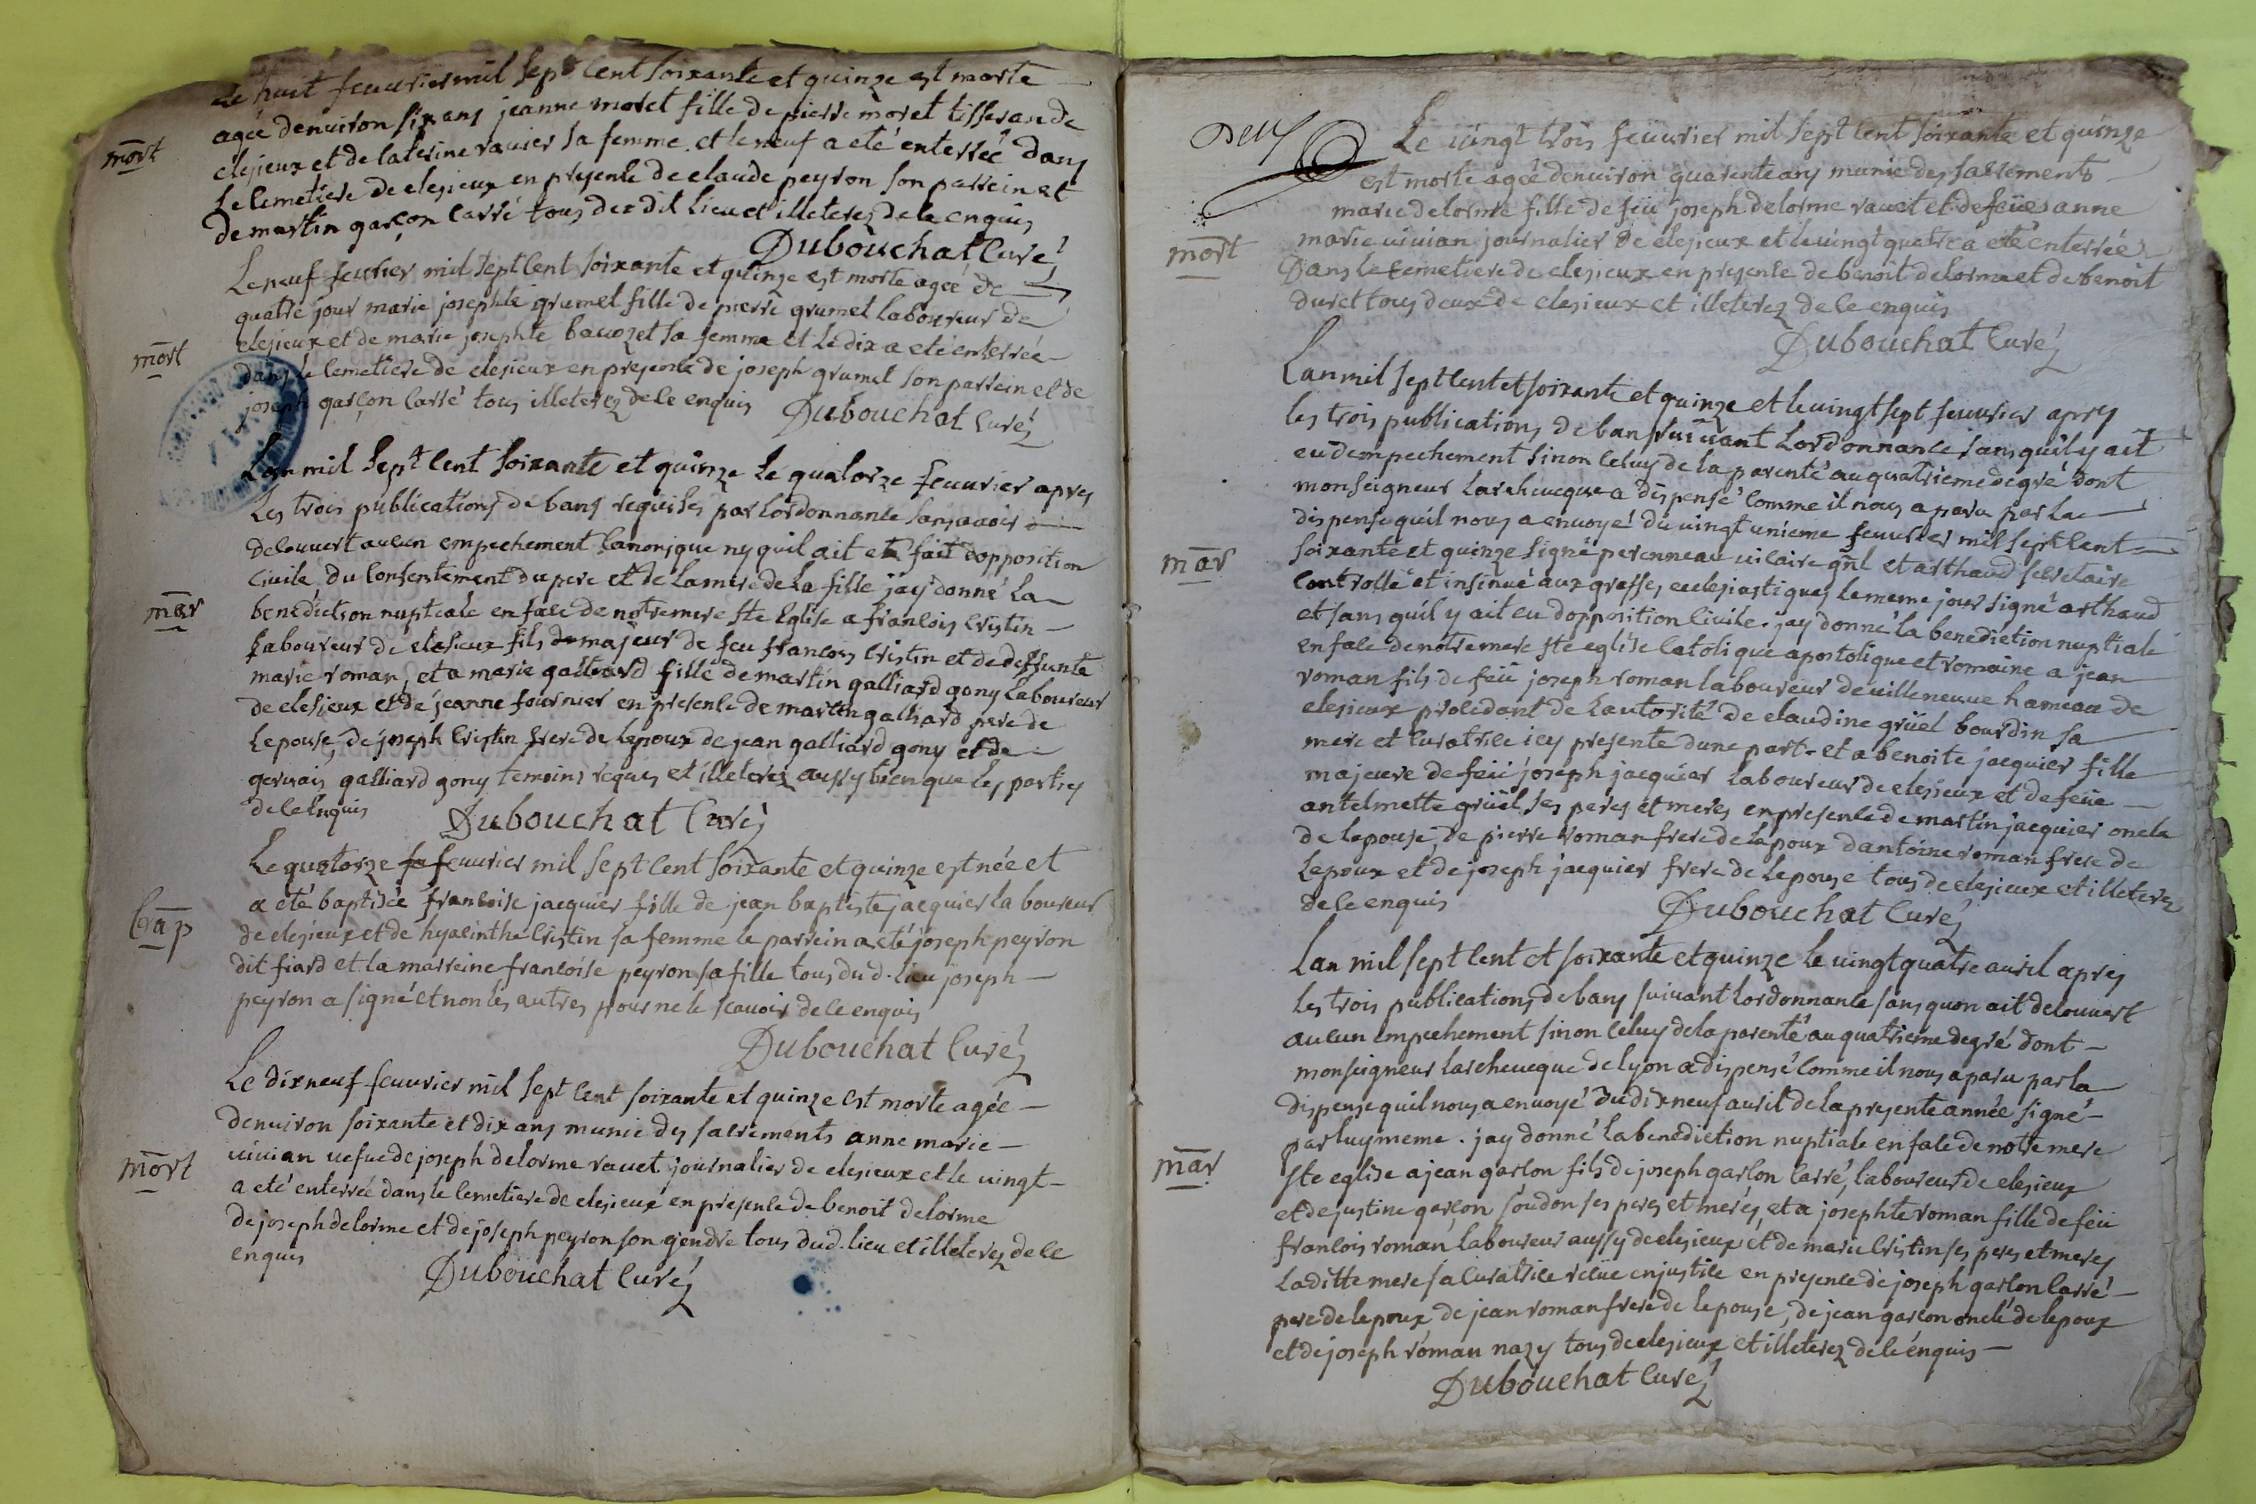 Le huit feuurier mil sept cent soixante et quinze est morte
mort
agée denuiron six ans jeanne moret fille de pierre moret tisserande
clejeux et de caterine rauier sa femme. et le neuf a eté enterreé dans
le cemetiere de clejieux en presence de claude peyron son parrein et
de martin garçon carré tous dudit lieu et illeterez de ce enquis
Dubouchat Curé
Le neuf feurier mil sept cent soixante et quinze est morte ageé de
quatre jour marie josephte grumel fille de pierre grumet laboureur de
mort
clejieux et de marie josephte bauozet sa femme et le dix a eté enterreé
dans le cemetiere de clesieux en presence de joseph grumel son parrein et de
joseph garçon carré tous illéterez de ce enquis Dubouchat Curé
Lan mil sept cent soixante et quinze le quatorze feuurier apres
les trois publications de bans requises par lordonnance sans auoir
decouuert aucun empechement canonique ny quil ait eté fait dopposition
ciuile du consentement du pere et de la mere de la fille jay donné la
mar
benediction nuptiale en face de notre mere ste Eglise a francois cristin
laboureur de clesieux fils majeur de feu francois cristin et de deffunte
marie roman, et a marie galliard fille de martin galliard gony laboureur
de clesieux et de jeanne fournier en presence de martin galliard pere de
lepouse, de joseph cristin frere de lepoux de jean galliard gony et de
geruais galliard gony temoins requis et illeterez aussy bien que les parties
de ce enquis Dubouchat Curé
Le quatorze feuurier mil sept cent soixante et quinze est née et
bap
a eté baptisée francoise jacquier fille de jean baptiste jacquier laboureur
de clejieux et de hyacinthe cristin sa femme le parrein a eté joseph peyron
dit fiard et la marreine francoise peyron sa fille tous du d. lieu joseph
peyron a signé et non les autres pour ne le scauoir de ce enquis
Dubouchat Curé
Le dix neuf feuurier mil sept cent soixante et quinze est morte agée
denuiron soixante et dix ans munie des sacrements anne marie
mort
uiuian uefue de joseph delorme rauet journalier de clejieux et le uingt
a eté enterreé dans le cemetiere de clejieux en presence de benoit delorme
de joseph delorme et de joseph peyron son gendre tous dud. lieu et illeterez de ce
enquis
Dubouchat Curé
Deux
Le uingt trois feuurier mil sept cent soixante et quinze
est morte ageé denuiron quarente ans munie des sacrements
marie delorme fille de feü joseph delorme rauet et de feüe anne
mort
marie uiuian journalier de clejieux et le uingt quatre a eté enterreé
Dans le cemetiere de clejieux en presence de benoit delorme et de benoit
duret tous deux de clejieux et illeterez de ce enquis
Dubouchat Curé
Lan mil sept cent et soixante et quinze et le uingt sept feuurier apres
les trois publications de ban suiuant lordonnance sans quil y ait
eu dempechement sinon celuy de la parenté au quatrieme degré dont
monseigneur larcheueque a dispensé comme il nous a paru par la
dispense quil nous a enuoyé du uingt unieme feuurier mil sept cent
mar
soixante et quinze signé peronneau uicaire gñl et arthaud secretaire
controllé et insinué aux greffes ecclesiastiques le meme jour signé arthaud
et sans quil y ait eu dopposition ciuile. jay donné la benediction nuptiale
en face de notre mere ste eglise catolique apostolique et romaine a jean
roman fils de feü joseph roman laboureur de uilleneuue hameau de
clejieux procedant de lautorité de claudine grüel bourdin sa
mere et curatrice icy presente dune part. et a benoite jacquier fille
majeure de feü joseph jacquier laboureur de clejieux et de feüe
antelmette grüel ses peres et meres en presence de martin jacquier oncle
de lepouse, de pierre roman frere de lepoux dantoine roman frere de
lepoux et de joseph jacquier frere de lepouse tous de clejieux et illeterez
de ce enquis Dubouchat Curé
Lan mil sept cent et soixante et quinze le uingt quatre auril apres
les trois publications de bans suiuant lordonnance sans quon ait decouuert
aucun empechement sinon celuy de la parenté au quatrieme degré dont
monseigneur larcheueque de lyon a dispensé comme il nous a paru par la
dispense quil nous a enuoyé du dix neuf auril de la presente année signé
par luy meme. jay donné la benediction nuptiale en face de notre mere
mar
ste eglise a jean garcon fils de joseph garcon carré, laboureur de clejieux
et de justine garçon soudon ses peres et meres, et a josephte roman fille de feü
francois roman laboureur aussy de clejieux et de marie cristin ses peres et meres
laditte mere sa curatrice recüe en justice en presence de joseph garcon carré
pere de lepoux de jean roman frere de lepouse, de jean garcon oncle de lepoux
et de joseph roman nazy tous de clejieux et illeterez de ce enquis
Dubouchat Curé